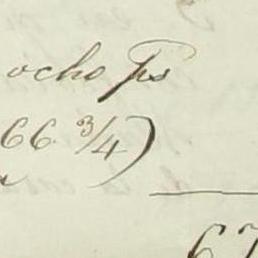 ocho ps
66 3/4)
67